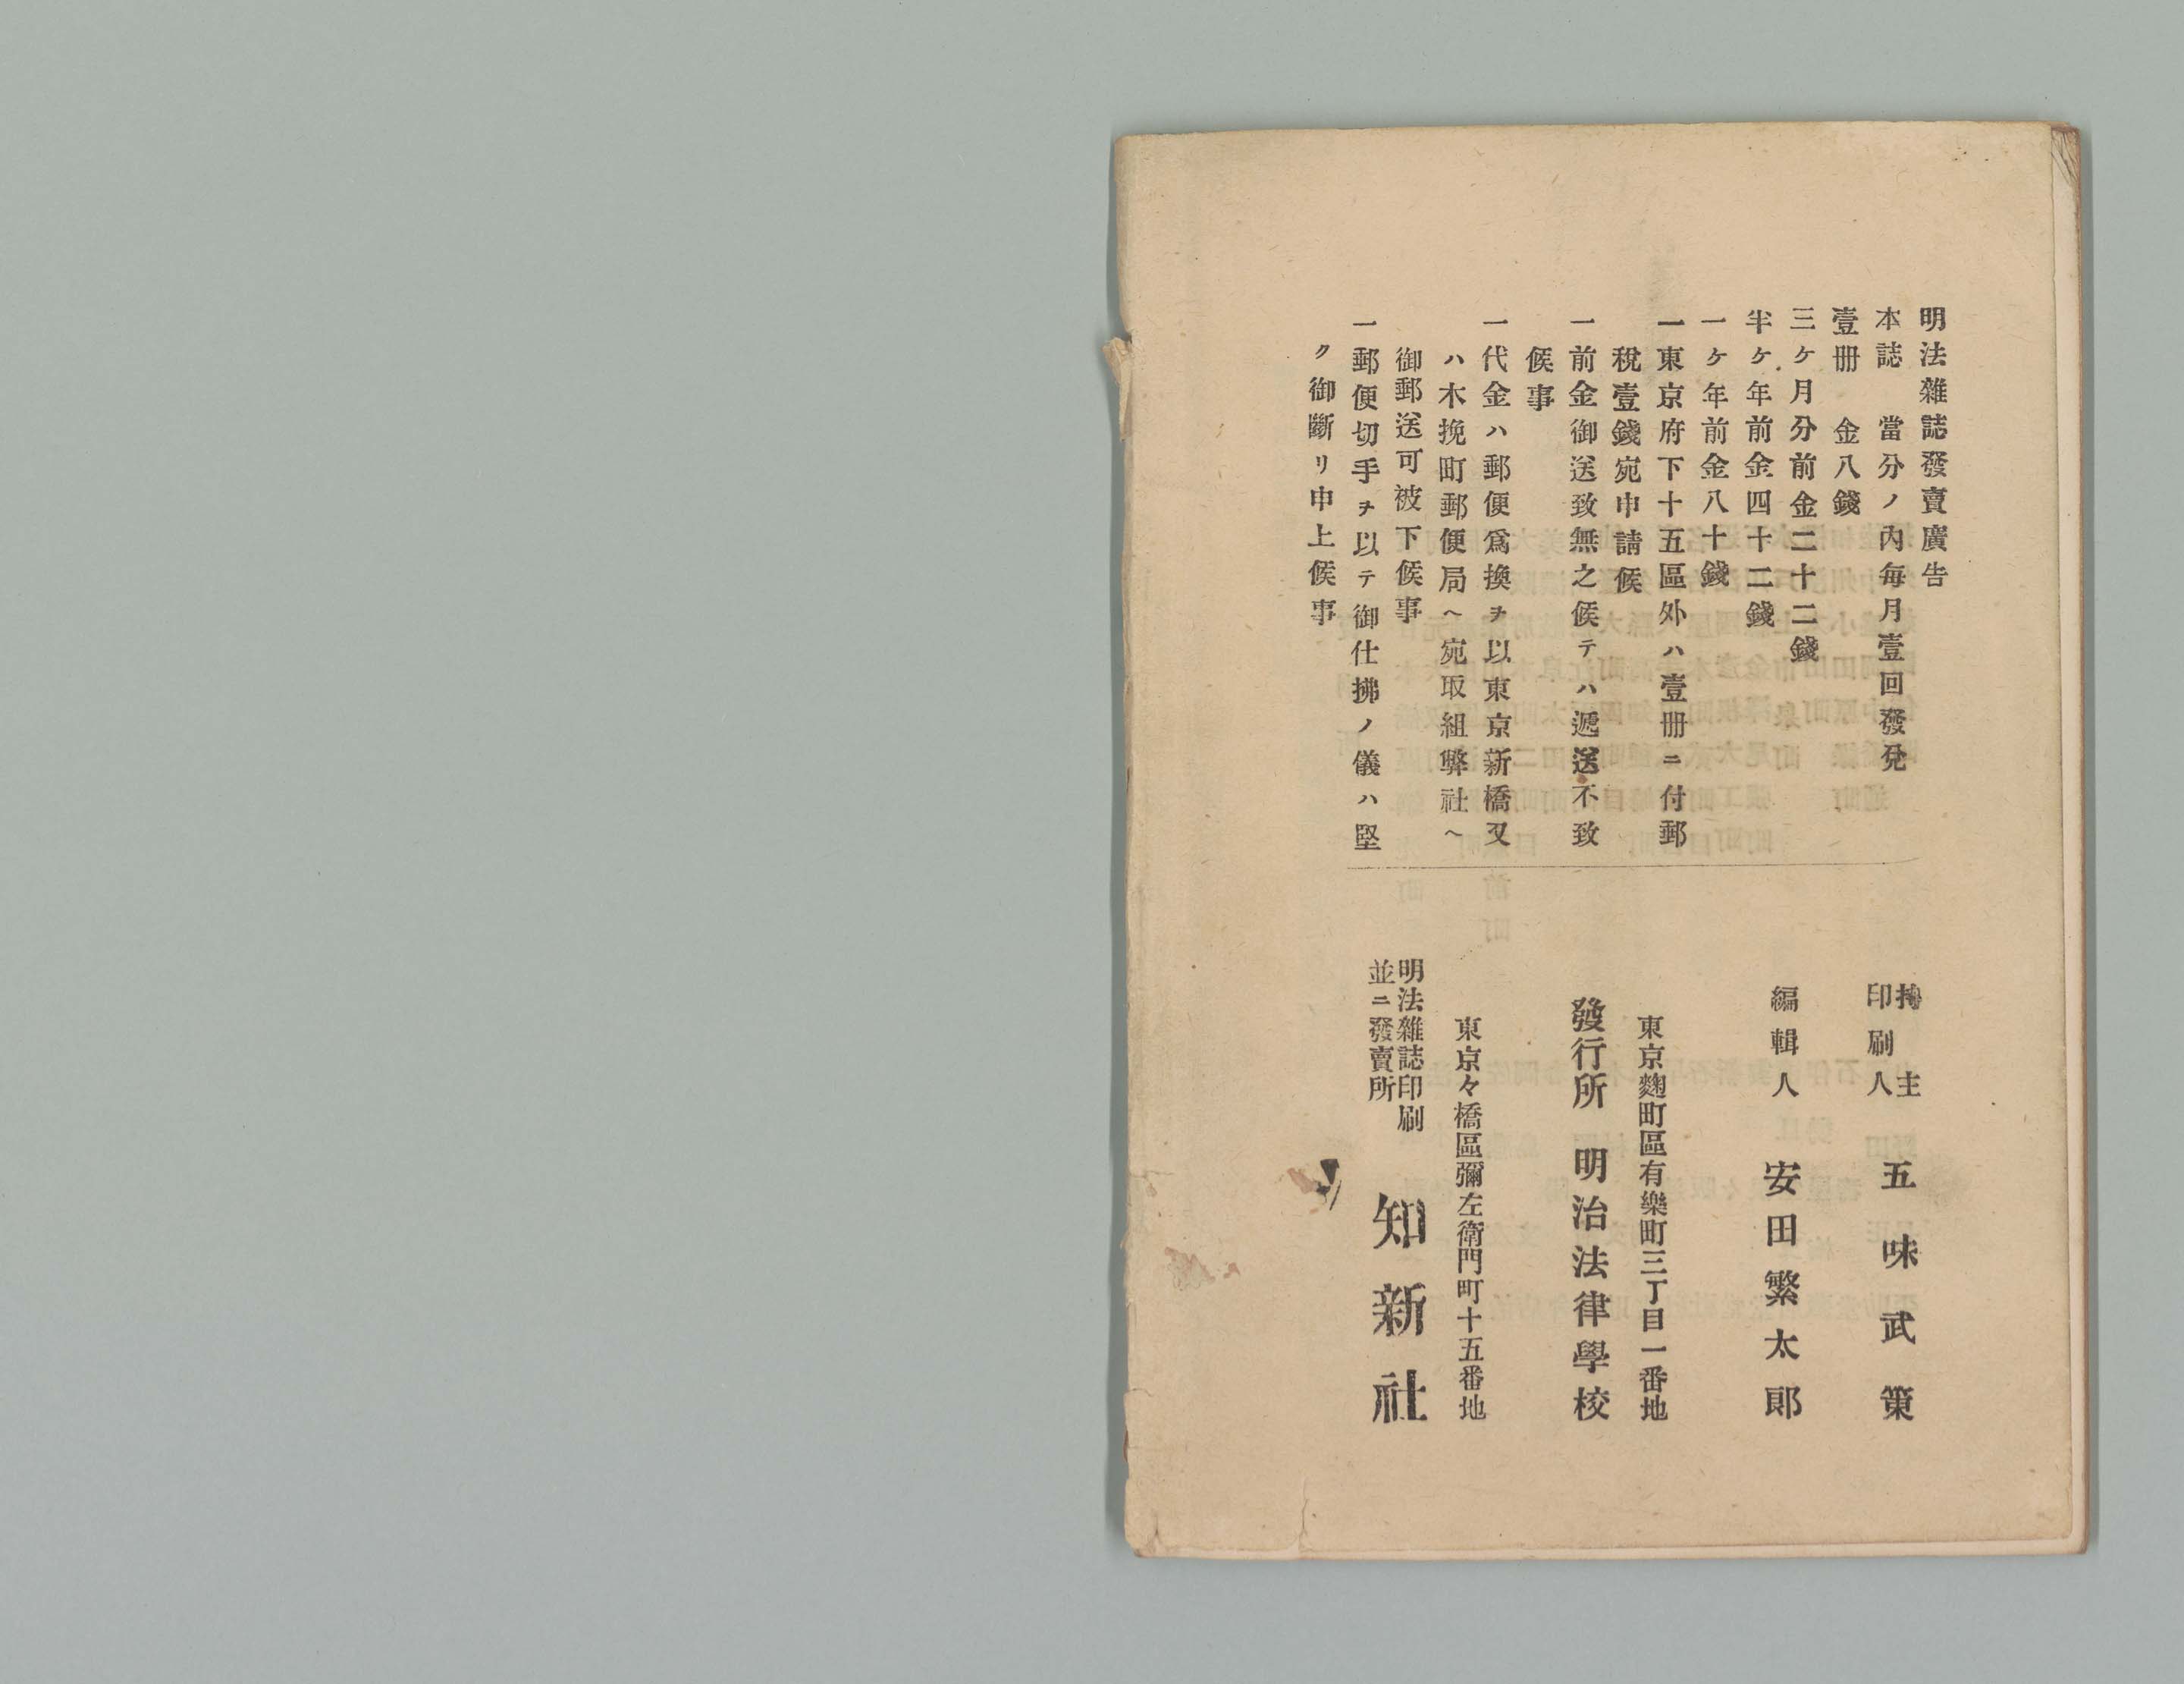 明法雜誌發賣廣告
本誌　當分ノ內每月壹回發兌
壹冊　金八錢
三ケ月分前金二十二錢
半ケ年前金四十二錢
一ケ年前金八十錢
一東京府下十五區外ハ壹冊ニ付郵
稅壹錢宛申請候
一前金御送致無之候テハ遞送不致
候事
一代金ハ郵便爲換ヲ以東京新橋又
ハ木挽町郵便局ヘ宛取組弊社ヘ
御郵送可被下候事
一郵便切手ヲ以テ御仕拂ノ儀ハ堅
ク御斷リ申上候事
持主
印刷人
五味武策
編輯人　安田繁太郎
東京麴町區有樂町三丁目一番地
發行所　明治法律學校
東京々橋區彌左衛門町十五番地
明法雜誌印刷
並ニ發賣所
知新社